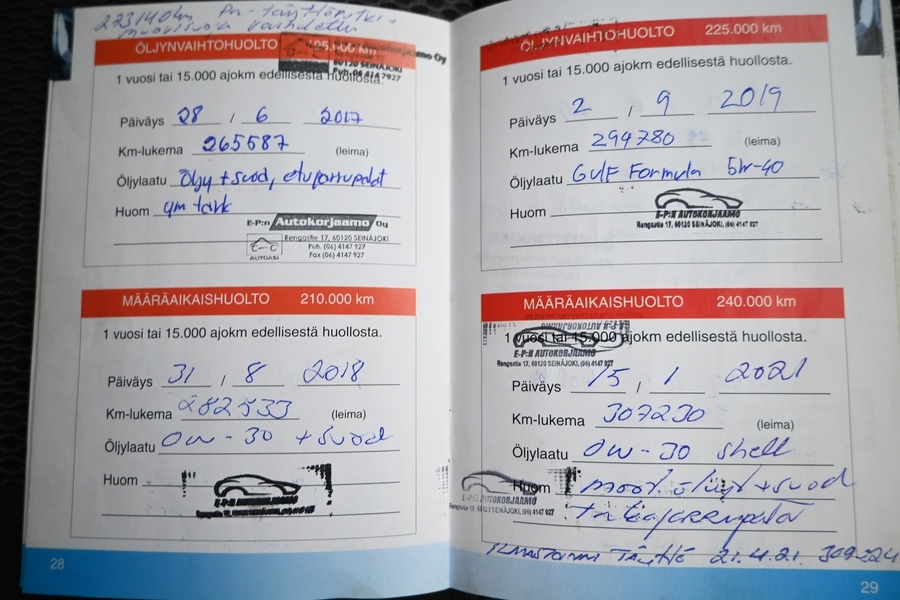 273140km Pa-täyttöputki +
vaihdettu
ÖLJYNVAIHTOHUOLTO 195.000 km
60120 SEINÄJOKI
Puh. 06 4147927
1 vuosi tai 15.000 ajokm edellisestä huollosta.
Päiväys 28 / 6 2017
Km-lukema 265587 (leima)
Öljylaatu Öljy + suod, etujarrupalat
Huom ym tark
E-P:n Autokorjaamo Oy
Rengastie 17, 60120 SEINÄJOKI
Puh. (06) 4147 927
Fax (06) 4147 927
AUTOASI
MÄÄRÄAIKAISHUOLTO 210.000 km
1 vuosi tai 15.000 ajokm edellisestä huollosta.
Päiväys 31 / 8 2018
Km-lukema 282533 (leima)
Öljylaatu 0w-30 + suod
Huom
E-P:N AUTOKORJAAMO
28
ÖLJYNVAIHTOHUOLTO 225.000 km
1 vuosi tai 15.000 ajokm edellisestä huollosta.
Päiväys 2 / 9 2019
Km-lukema 294780 (leima)
Öljylaatu Gulf Formula 5w-40
Huom
E-P:N AUTOKORJAAMO
Rengastie 17, 60120 SEINÄJOKI, (06) 4147 927
MÄÄRÄAIKAISHUOLTO 240.000 km
1 vuosi tai 15.000 ajokm edellisestä huollosta.
E-P:N AUTOKORJAAMO
Rengastie 17, 60120 SEINÄJOKI, (06) 4147 927
Päiväys 15 / 1 2021
Km-lukema 307230 (leima)
Öljylaatu 0w-30 shell
Huom moot. öljyt + suod
E-P:N AUTOKORJAAMO
Takajarrupalat
Ilmastoinni Täyttö 21.4.21. 309224
29